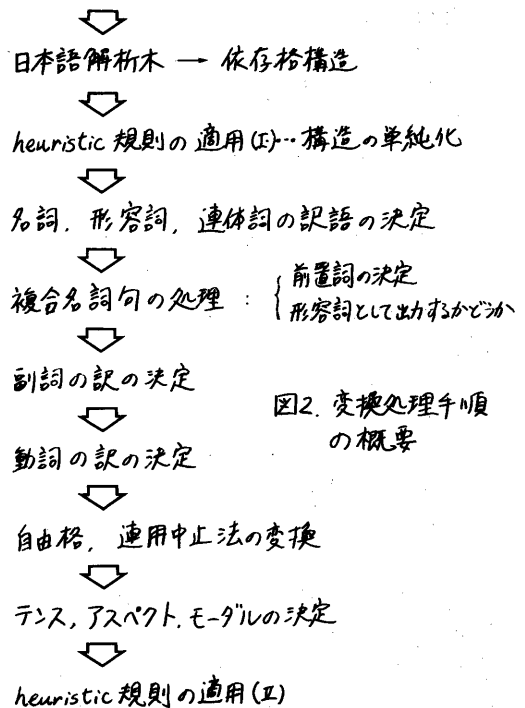 日本語解析木 → 依存格構造
heuristic 規則の適用(I)… 構造の単純化
名詞, 形容詞, 連体詞の訳語の決定
複合名詞句の処理 : { 前置詞の決定
形容詞として出力するかどうか
副詞の訳の決定
図2. 変換処理手順
の概要
動詞の訳の決定
自由格, 連用中止法の変換
テンス, アスペクト, モーダルの決定
heuristic 規則の適用(II)